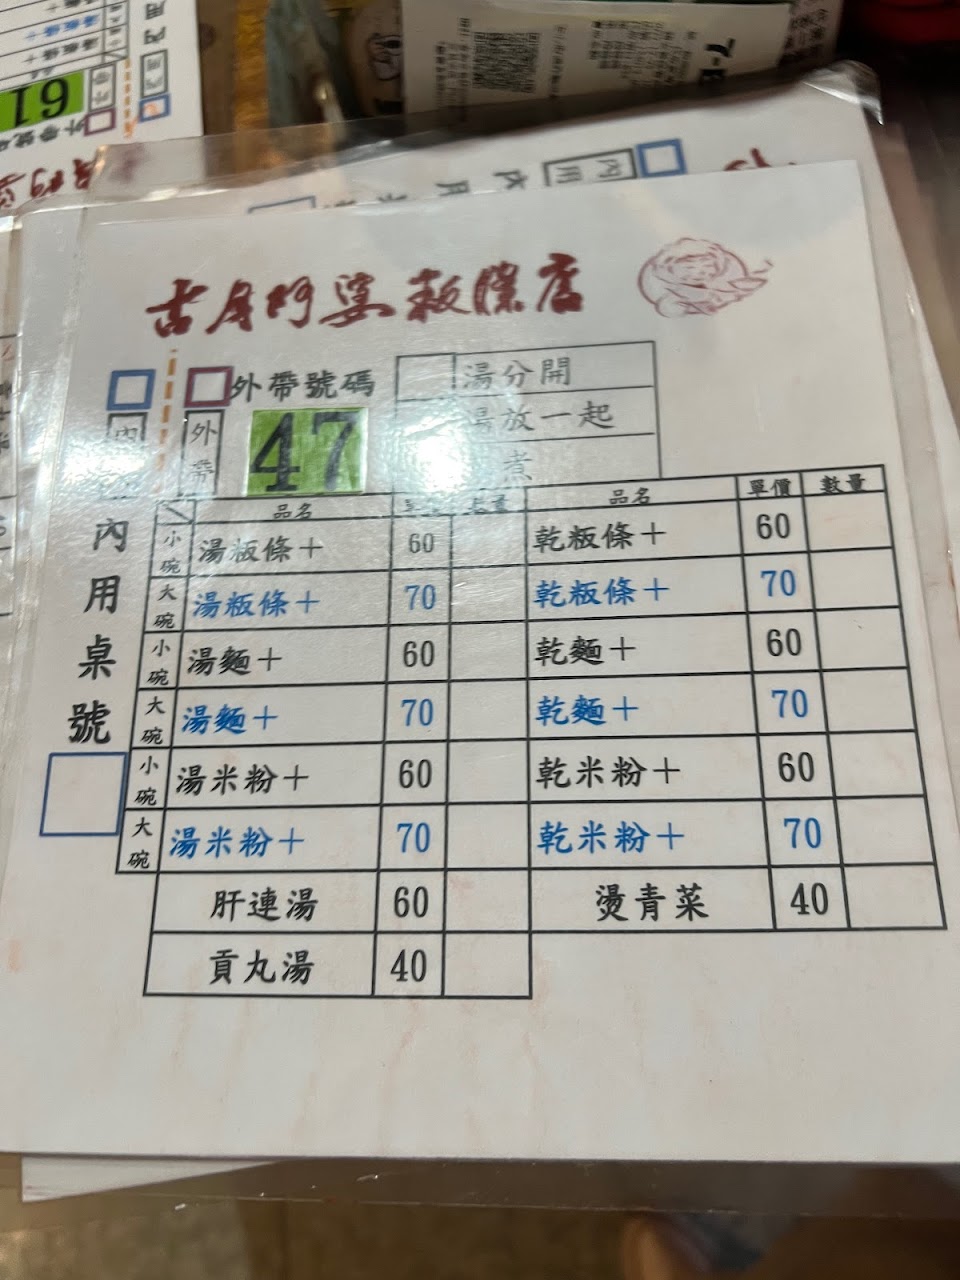 61
外帶號碼
內用
古早阿婆粄條店
外帶號碼
湯分開
湯放一起
煮
內
外帶
47
內用桌號
品名 數量 品名 單價 數量
小碗 湯粄條＋ 60 乾粄條＋ 60
大碗 湯粄條＋ 70 乾粄條＋ 70
小碗 湯麵＋ 60 乾麵＋ 60
大碗 湯麵＋ 70 乾麵＋ 70
小碗 湯米粉＋ 60 乾米粉＋ 60
大碗 湯米粉＋ 70 乾米粉＋ 70
肝連湯 60 燙青菜 40
貢丸湯 40